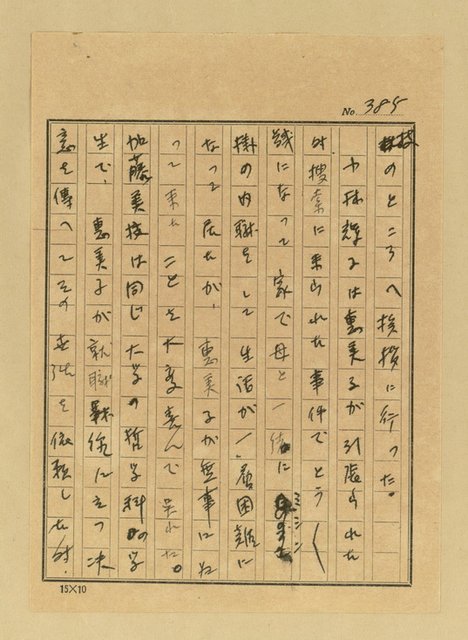 No. 385
枝のところへ挨拶に行った。
小林輝子は惠美子が引張られた
時、捜索に来られた事件でとう〱
馘になって家で母と一緒にミシン
掛の内職をして生活が一層困難に
なって居たが、惠美子が無事に
って来たことを大変喜んで呉れた。
加藤美枝は同じ大学の哲学科の学
生で、惠美子が就職戦線に立つ決
意を傳へてその世話を依頼した時、
15×10